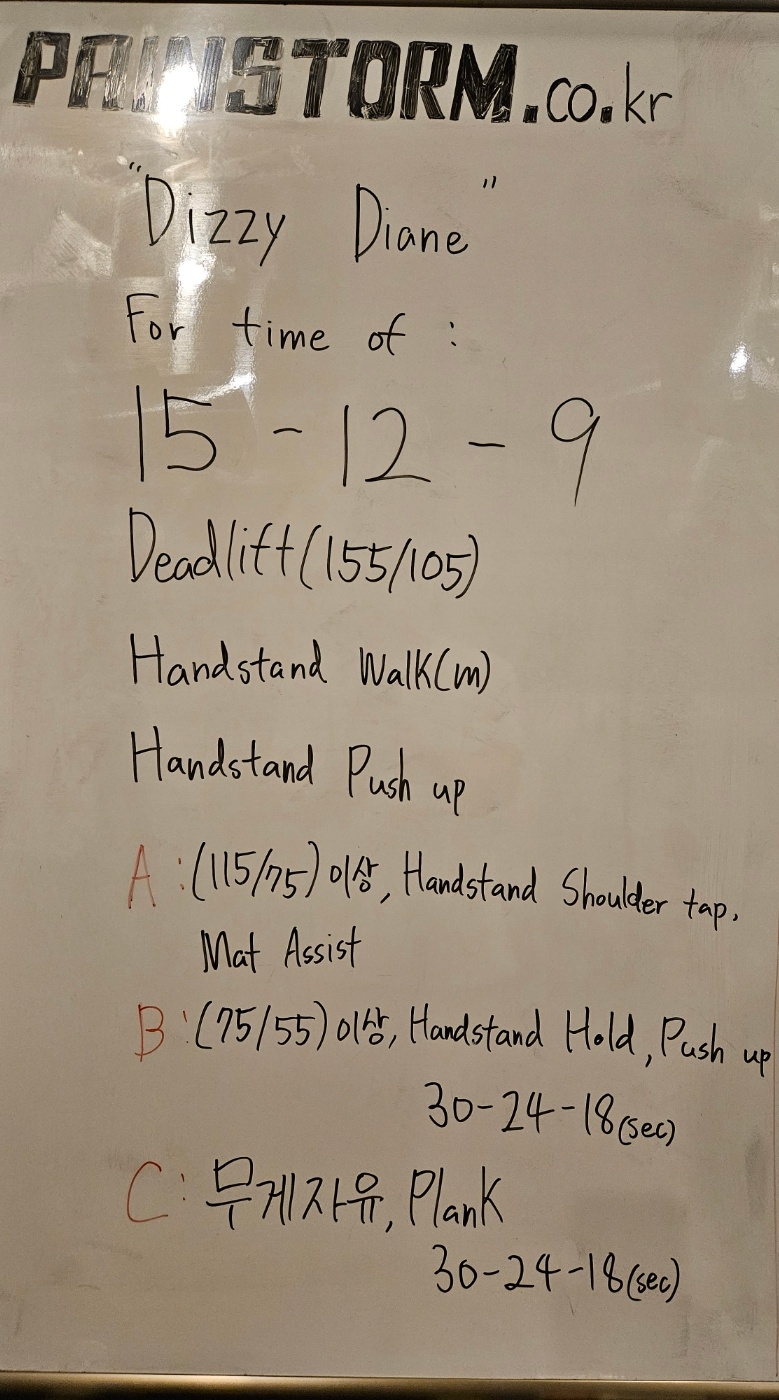 PAINSTORM.co.kr
"Dizzy Diane"
For time of :
15 - 12 - 9
Deadlift(155/105)
Handstand Walk(m)
Handstand Push up
A : (115/75) 이상, Handstand Shoulder tap,
Mat Assist
B : (75/55) 이상, Handstand Hold, Push up
30-24-18(sec)
C : 무게자유, Plank
30-24-18(sec)